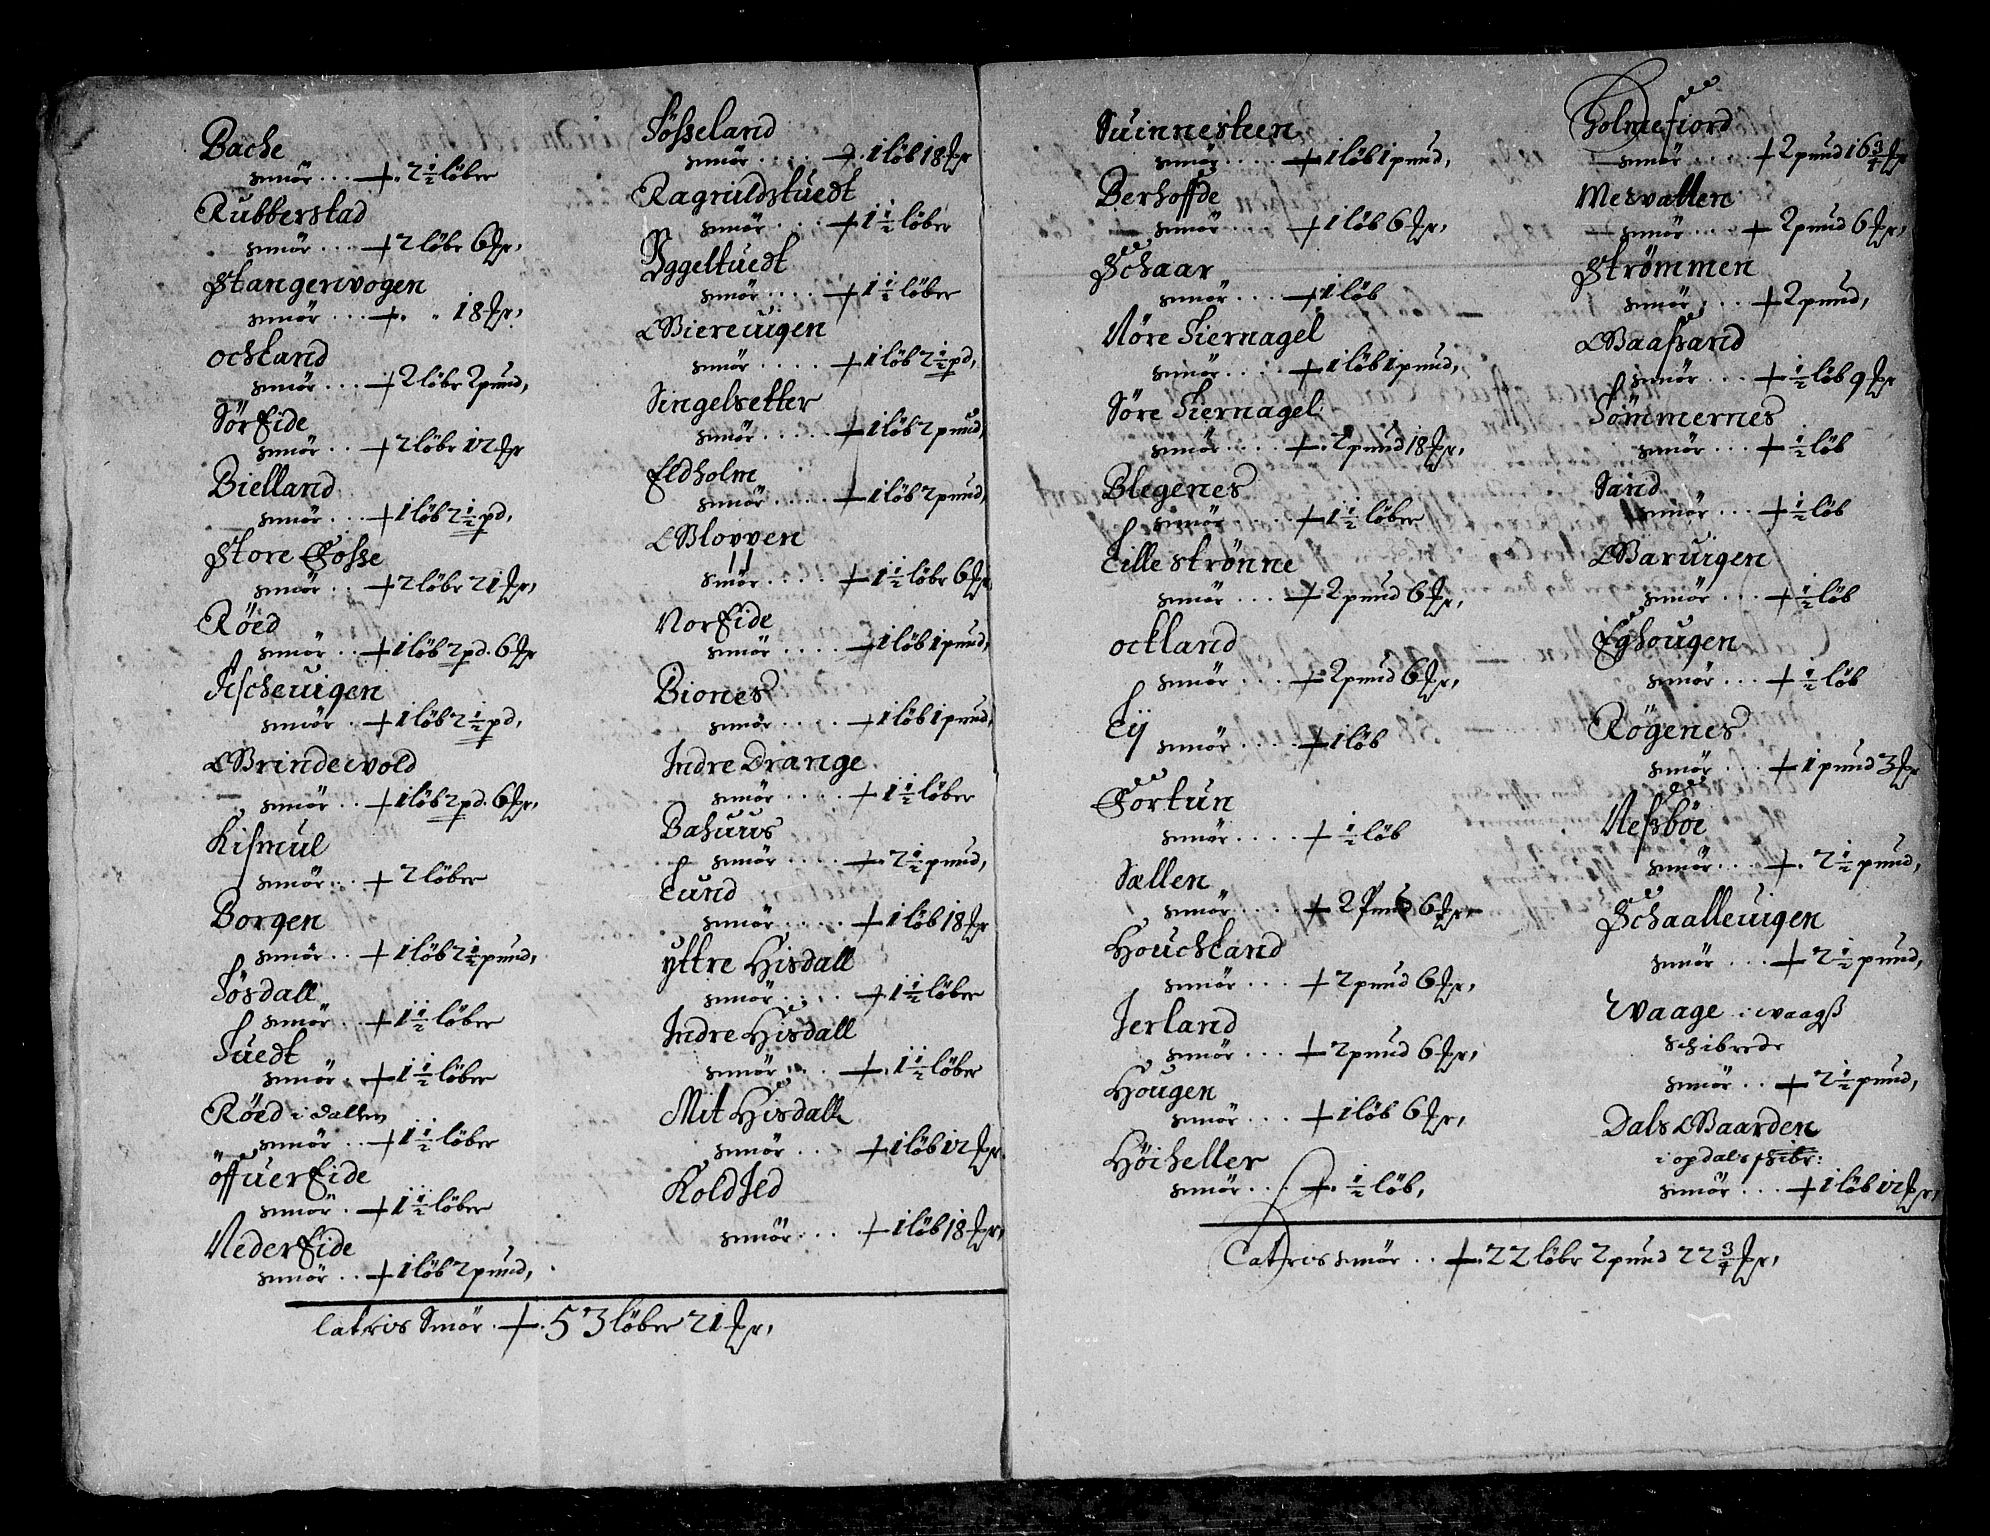 Bache
smör . . . + . 2 1/2 löber
Rubberstad
smör . . . + 2 löbr 6 ℔r,
Stangervogen
smör . . . + . „ 18 ℔r,
ochland
smör . . . + 2 löbr 2 pund,
Sör Eide
smör . . + 2 löbr 12 ℔r
Bielland
smör . . . + 1 löb 2 1/2 pd,
Store Fosse
smör . . + 2 löbr 21 ℔r,
Röed
smör . . + 1 löb 2 pd. 6 ℔r
Fischeuigen
smör . + 1 löb 2 1/2 pd,
Brindevold
smör . . + 1 löb 2 pd. 6 ℔r,
Kismul
smör . . . + 2 löber
Borgen
smör . . + 1 löb 2 1/2 pund,
Lösdall
smör . . + 1 1/2 löber
Tuedt
smör . + 1 1/2 löber
Röed i dallen
smör . . + 1 1/2 löber
öffuer Eide
smör . + 1 1/2 löber
Neder Eide
smör . . + 1 löb 2 pund,
Lösseland
smör . . . . + . 1 löb 18 ℔r
Ragnildstuedt
smör . . . + 1 1/2 löber
Yggeltuedt
smör . . . . + 1 1/2 löber
Biereuigen
smör . . . . . + 1 löb 2 1/2 pd,
Singelsetter
smör . . . . . + 1 löb 2 pund,
Eldholm
smör . . . . . + 1 löb 2 pund,
Blovven
smör . . . . . + 1 1/2 löbr 6 ℔r,
Nor Eide
smör . . . . + 1 löb 1 pund,
Biones
smör . . . . . + 1 löb 1 pund,
Indre Drange
smör . . . . . + 1 1/2 löber
Bahuus
smör . . . . . + . 2 1/2 pund,
Lund
smör . . . . . + 1 löb 18 ℔r
yttre Hisdall
smör . . . . + 1 1/2 löber
Indre Hisdall
smör . . . + . 1 1/2 löber
Mit Hisdall
smör . . . + 1 löb 12 ℔r
Koldsed
smör . . . . + 1 löb 18 ℔r,
Latris Smör . + . 53 löber 21 ℔r,
Suinnesteen
smör . . . . + 1 löb 1 pund,
Berhoffde
smör . . . . + 1 löb 6 ℔r,
Schaar
smör . . . + 1 löb
Nöre Tiernagel
smör . . . . + 1 löb 1 pund,
Söre Tiernagel
smör . . . . + . 2 pund 18 ℔r,
Blegenes
smör . . . . + 1 1/2 löber
Lille strönne
smör . . . + 2 pund 6 ℔r,
ockland
smör . . . + 2 pund 6 ℔r,
Lij
smör . . . . + 1 löb
Fortun
smör . . . . + 1/2 löb
Sællen
smör . . . . + 2 pund 6 ℔r,
Houchland
smör . . . + 2 pund 6 ℔r,
Jerland
smör . . . + 2 pund 6 ℔r,
Hougen
smör . . . + 1 löb 6 ℔r,
Höiheller
smör . . . + . 1/2 löb,
Holmefiord
smör . . . . + 2 pund 16 3/4 ℔r
Mesvatten
smör . . . + 2 pund 6 ℔r,
Strömmen
smör . . . + 2 pund,
Baassand
smör . . . + 1/2 löb 9 ℔r
Lömmernes
smör . . . + 1/2 löb
Sand
smör . . . + 1/2 löb
Baruigen
smör . . . + 1/2 löb
Eghougen
smör . . . + 1/2 löb
Rögenes
smör . . . + 1 pund 3 ℔r
Nessböe
smör . . . + . 2 1/2 pund,
Schaalleuigen
smör . . . + 2 1/2 pund,
Waage i waagß
schibrede
smör . . + 2 1/2 pund,
Dals Baarden
i opdals schibr:
smör . . . + 1 löb 12 ℔r,
Latris smör . . + . 22 löbr 2 pund 22 3/4 ℔r,